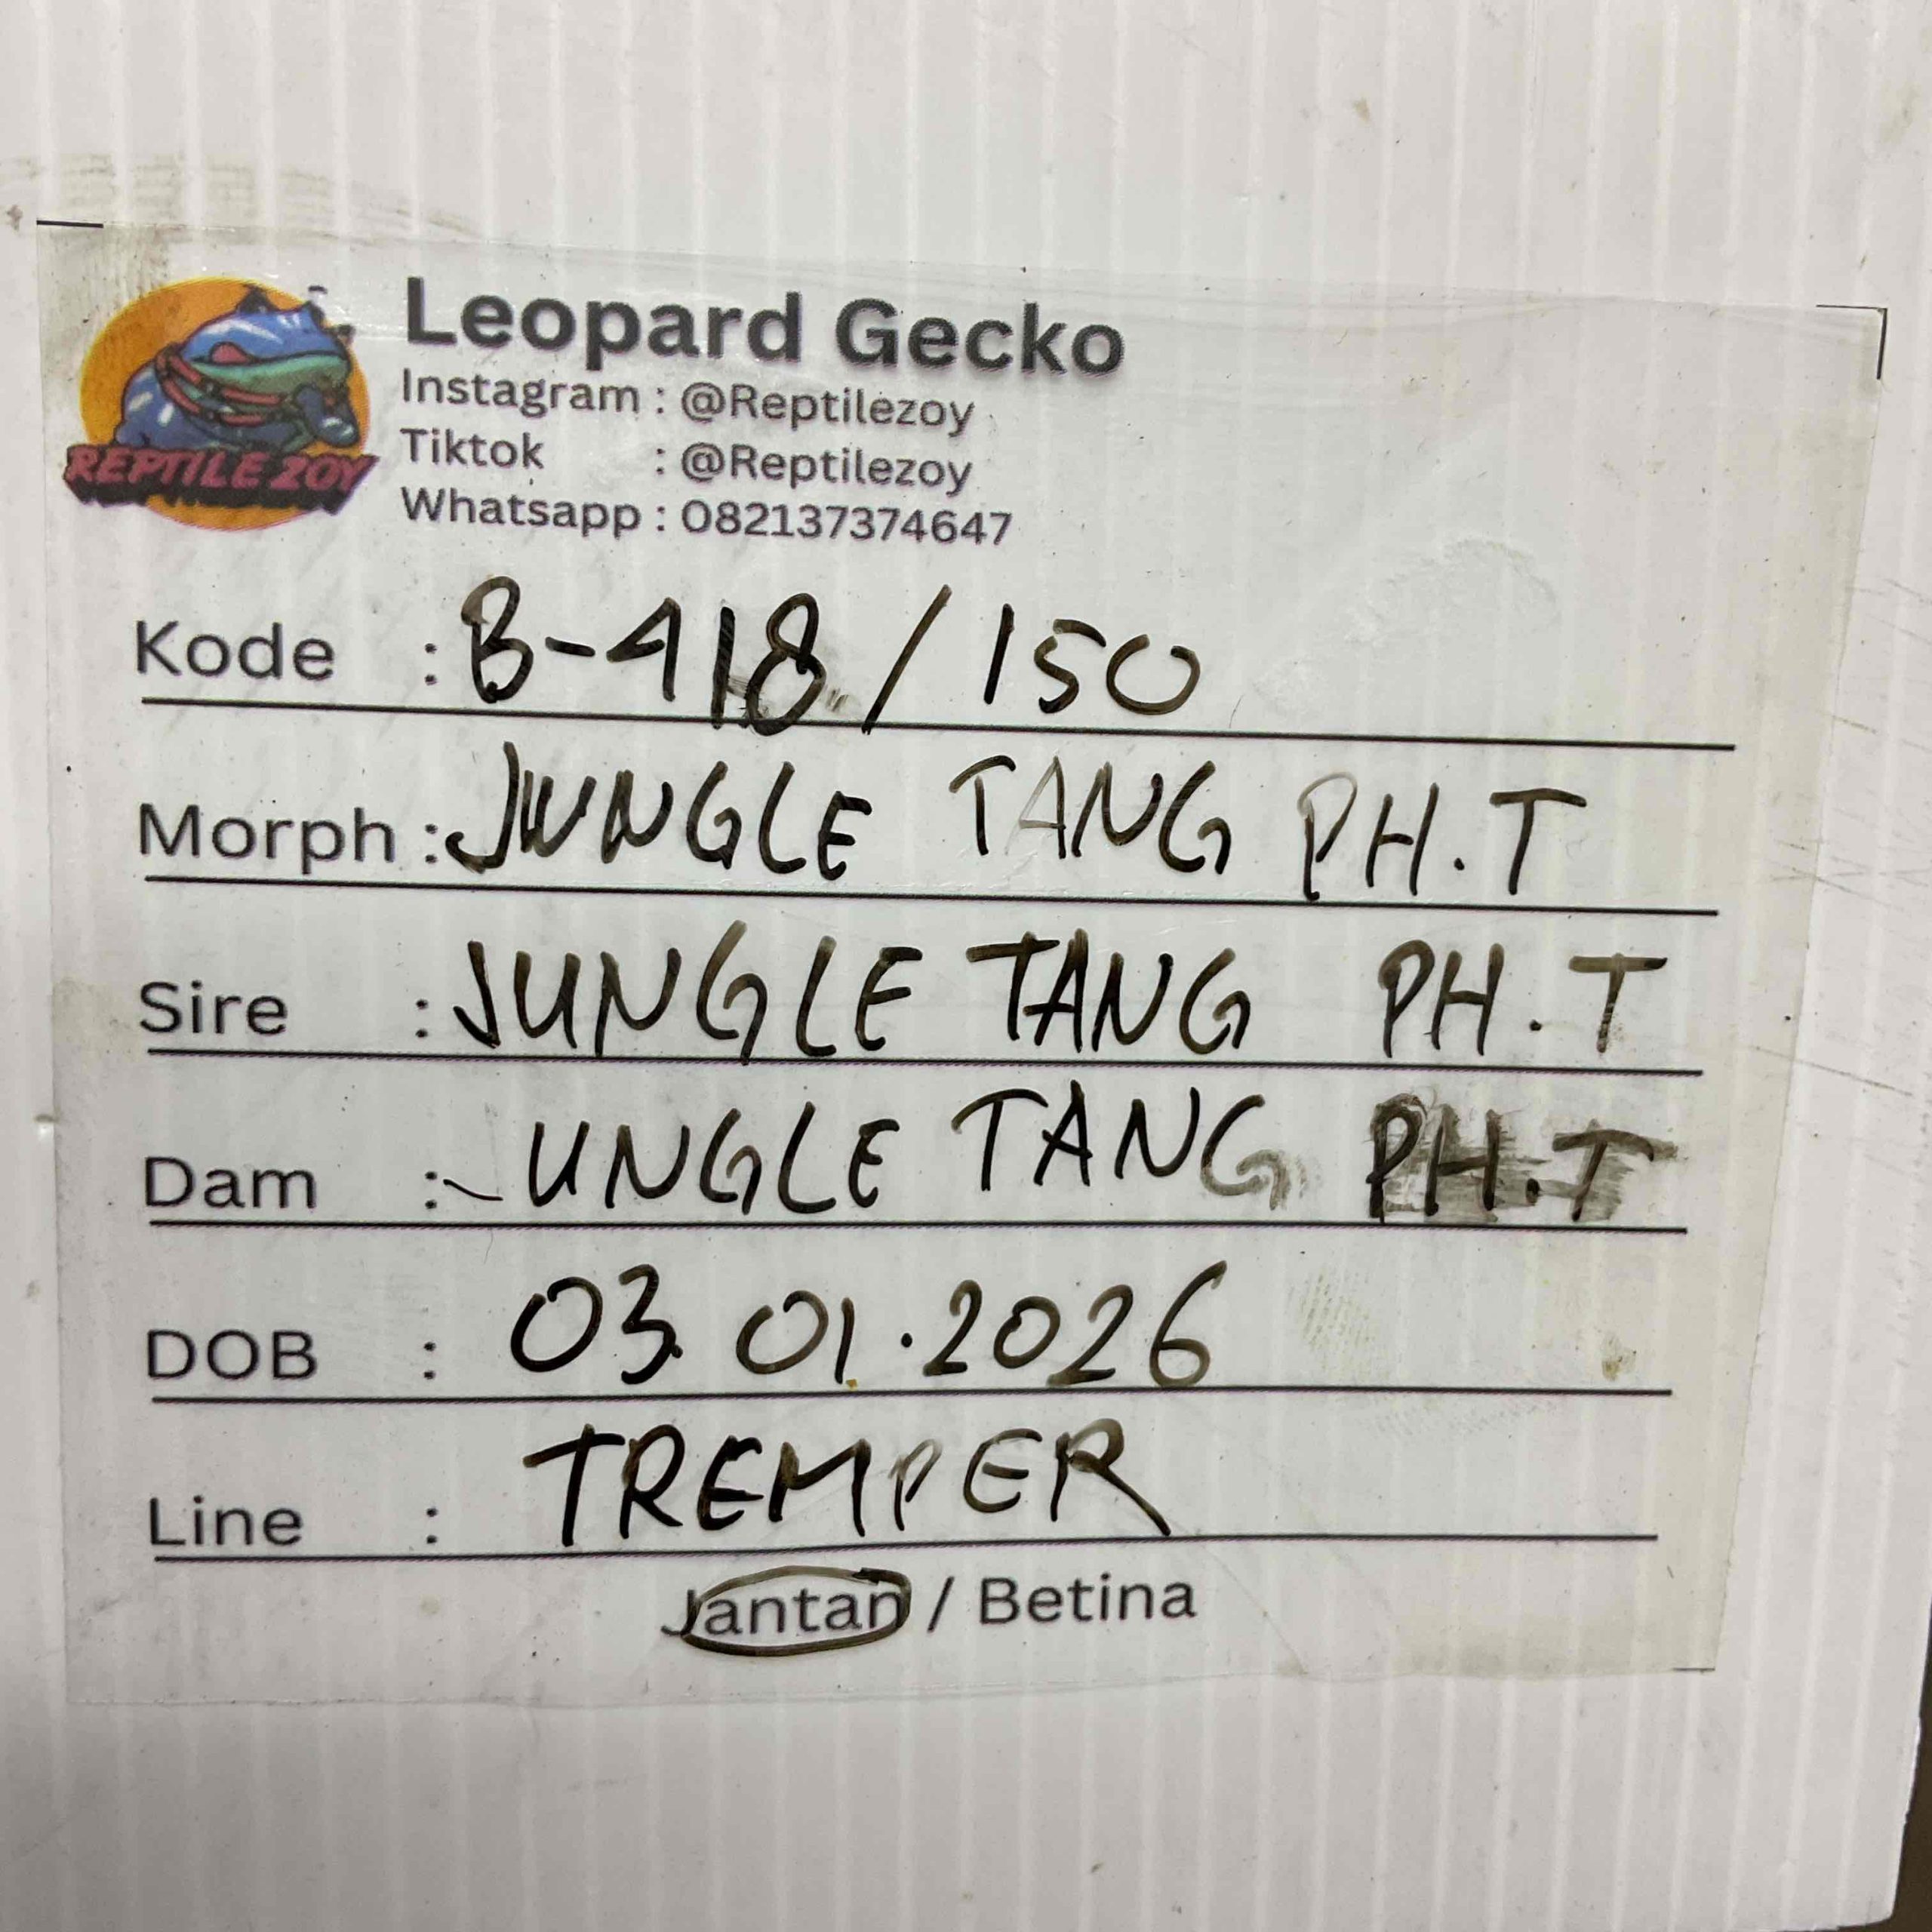 Leopard Gecko
Instagram : @Reptilezoy
Tiktok : @Reptilezoy
Whatsapp : 082137374647
REPTILE ZOY
Kode : B-418/150
Morph : JUNGLE TANG PH.T
Sire : JUNGLE TANG PH.T
Dam : JUNGLE TANG PH.T
DOB : 03.01.2026
Line : TREMPER
Jantan / Betina